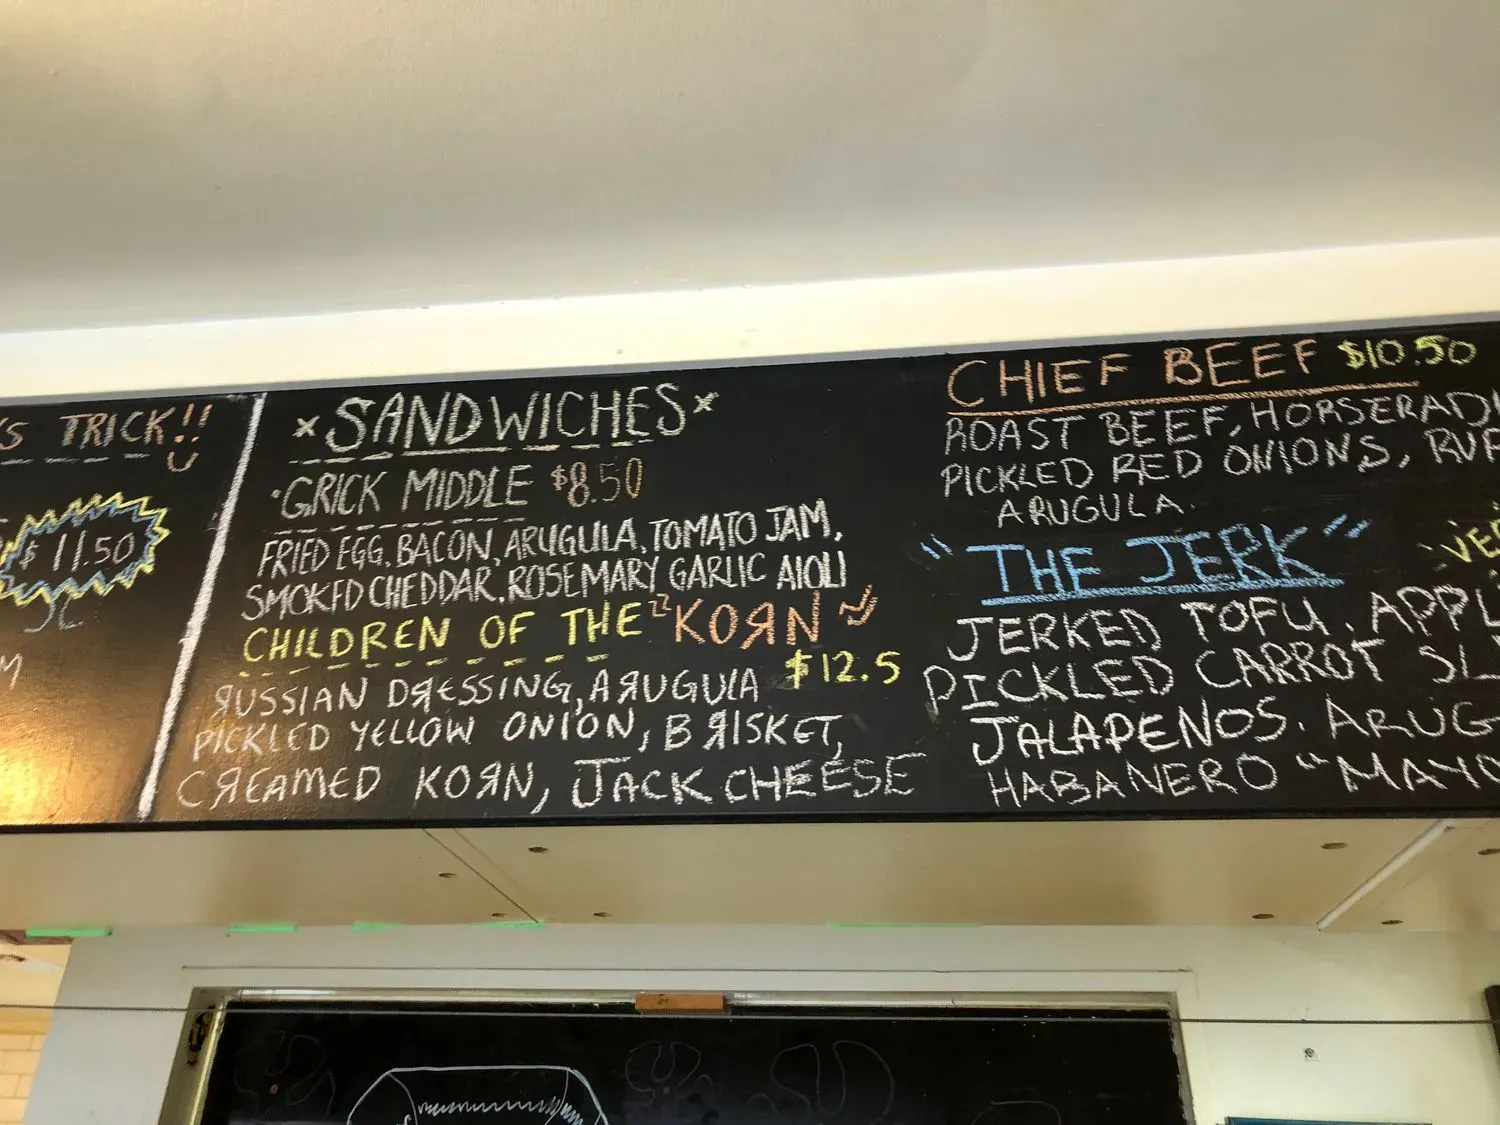 S TRICK!!
$11.50
M
SANDWICHES
GRICK MIDDLE $8.50
FRIED EGG, BACON, ARUGULA, TOMATO JAM,
SMOKED CHEDDAR, ROSEMARY GARLIC AIOLI
CHILDREN OF THE KOЯN
$12.5
ЯUSSIAN DЯESSING, AЯUGULA
PICKLED YELLOW ONION, BЯISKET,
CЯEAMED KOЯN, JACK CHEESE
CHIEF BEEF $10.50
ROAST BEEF, HORSERADI
PICKLED RED ONIONS,
ARUGULA.
"THE JERK"
JERKED TOFU. APPL
PICKLED CARROT SL
JALAPENOS. ARUG
HABANERO "MAYO